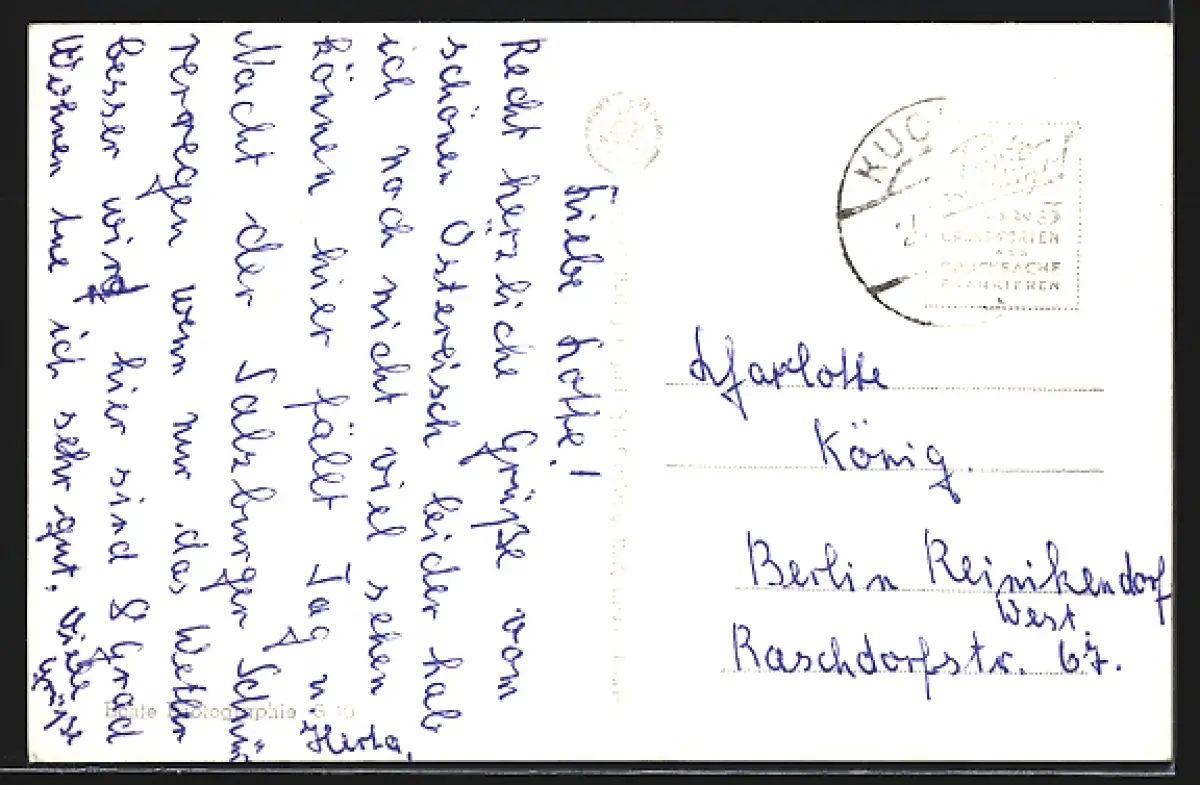 Liebe Lotte!
Recht herzliche Grüße vom
schönen Östereisch leider hab
ich noch nicht viel sehen
können hier fällt Tag u
Nacht der Salzburger Schnür
rerregen wenn nur das Wetter
besser wird hier sind 8 Grad
Wohnen tue ich sehr gut. viele
Grüße
Herta.
KUC
GRUSSKARTEN
ALS
DRUCKSACHE
FRANKIEREN
Charlotte
König.
Berlin Reinikendorf
West.
Raschdorfstr. 67.
Echte Photographie G 10